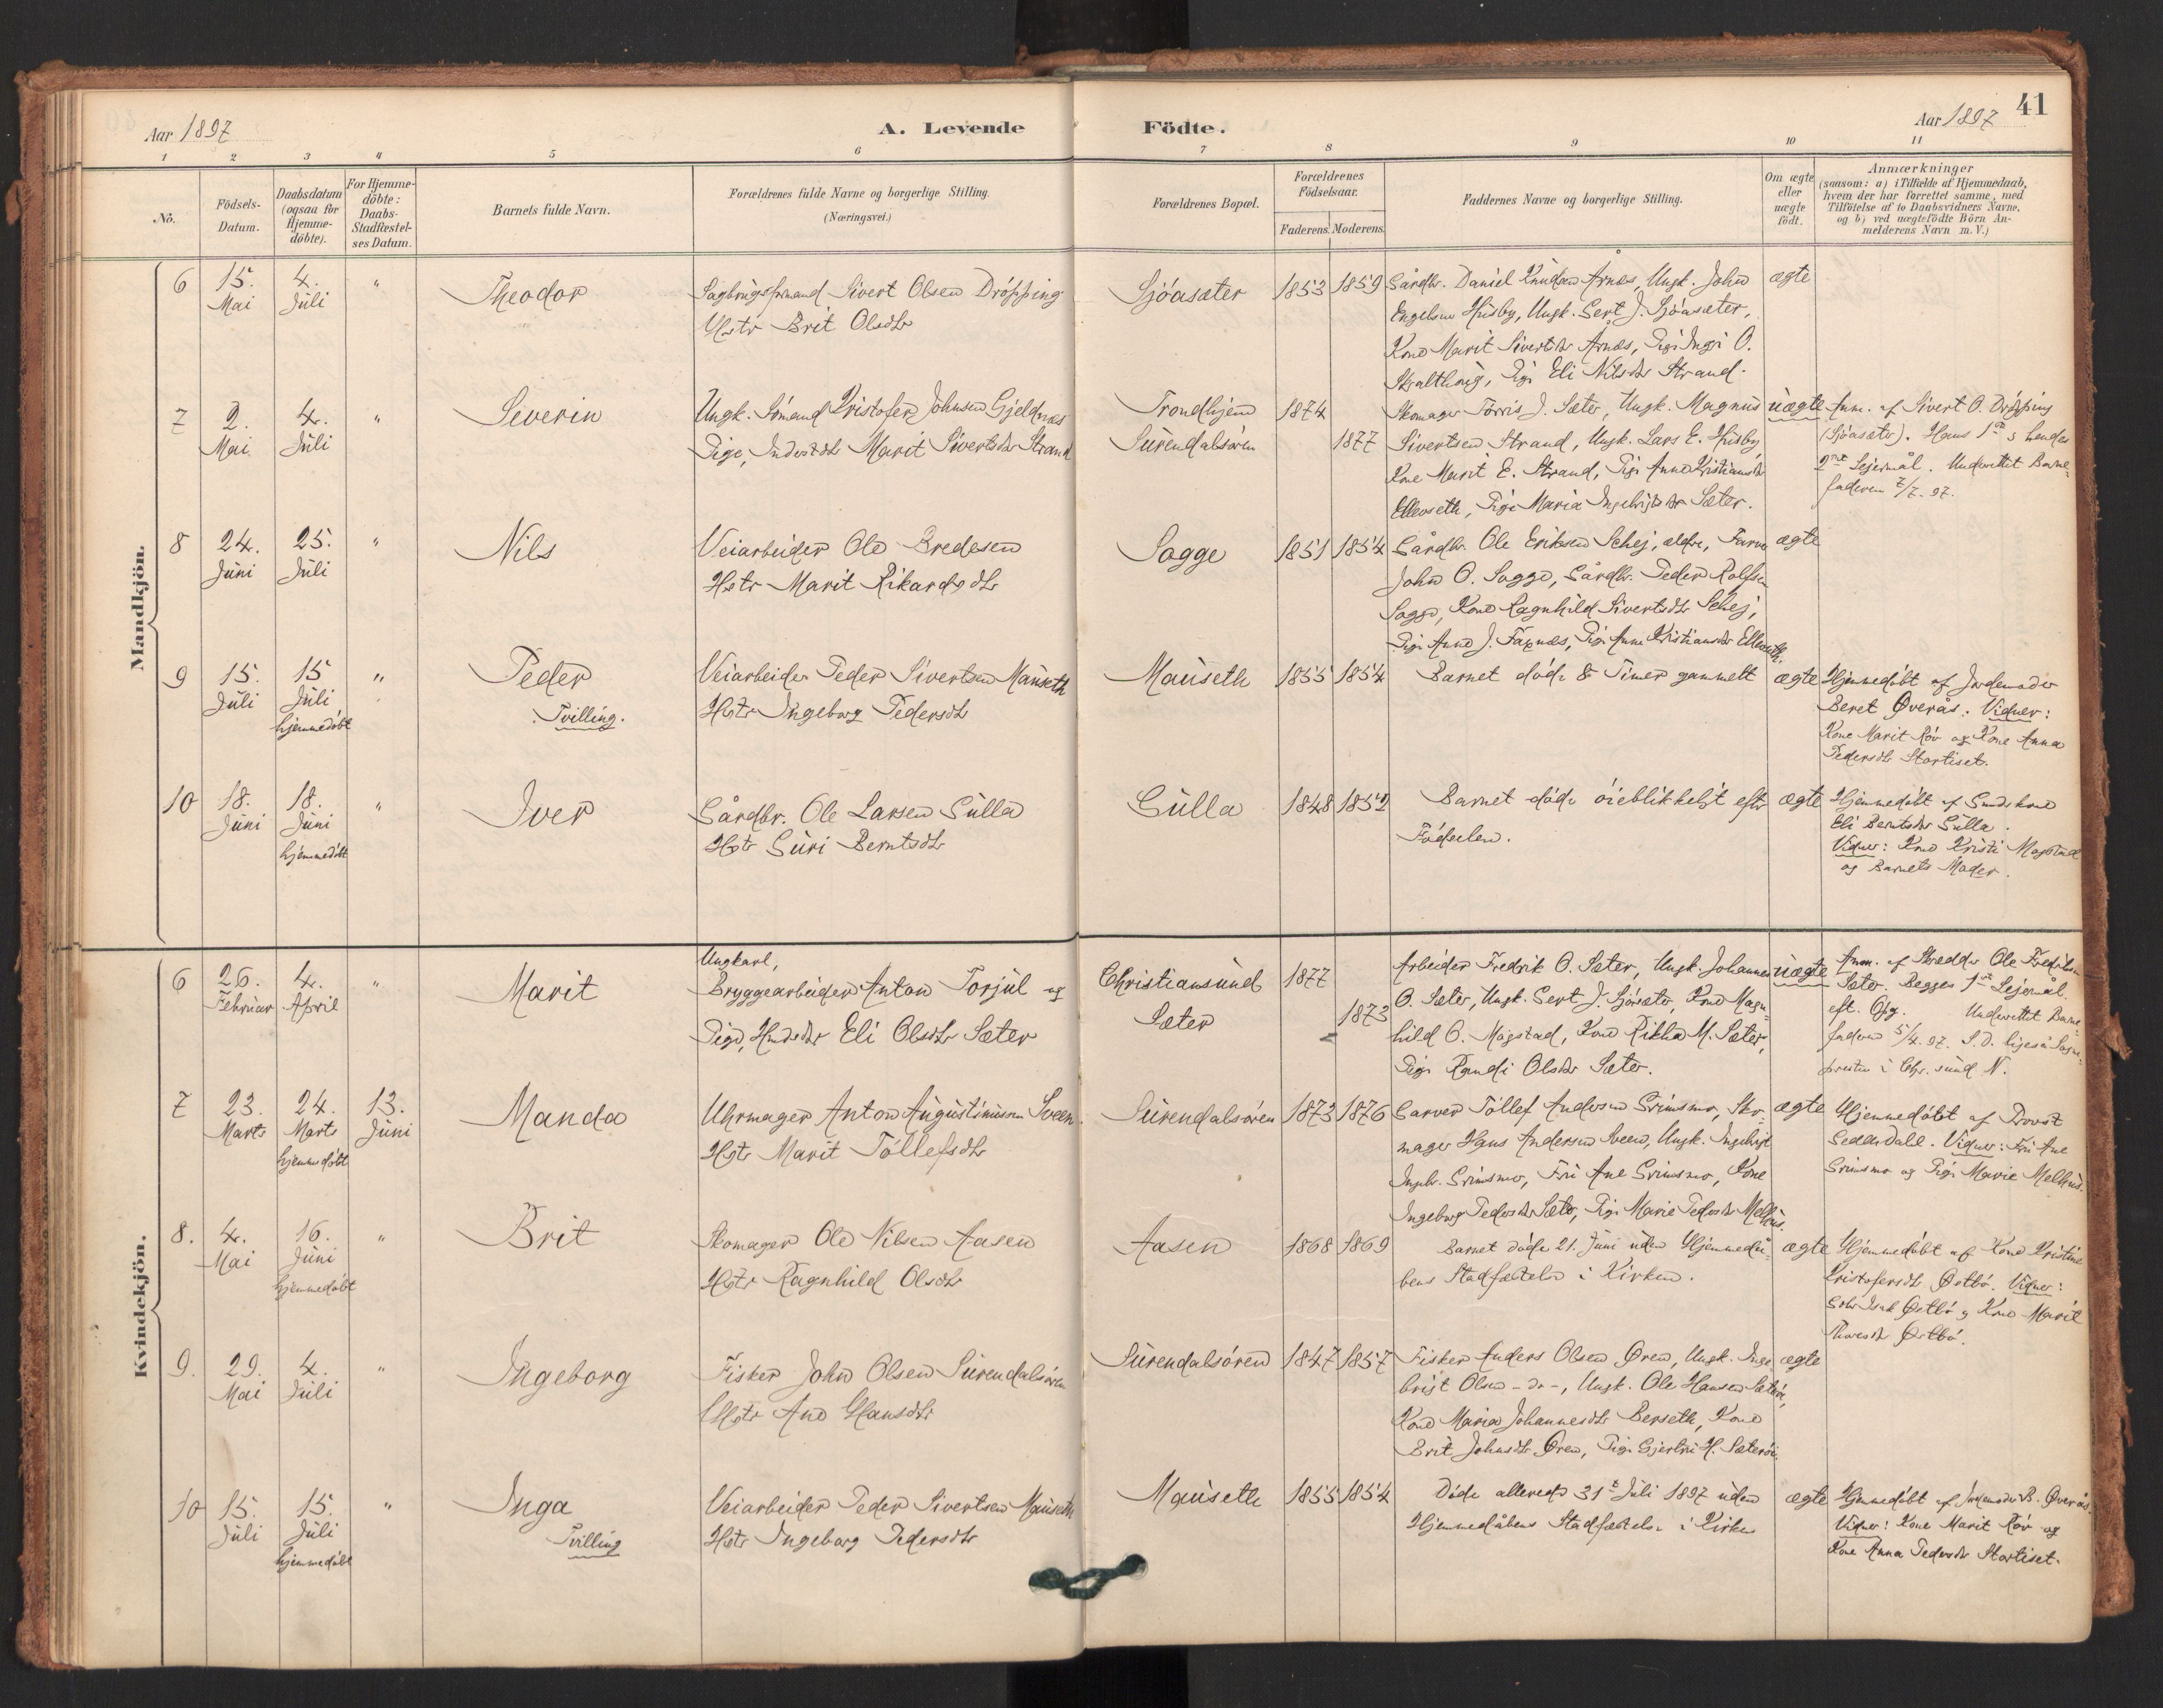 41
Aar 1897
A. Levende Födte.
Aar 1897
1 2 3 4 5 6 7 8 9 10 11
No.
Födsels-
Datum.
Daabsdatum
(ogsaa for
Hjemme-
döbte).
For Hjemme-
döbte:
Daabs-
Stadfæstel-
ses Datum.
Barnets fulde Navn.
Forældrenes fulde Navne og borgerlige Stilling.
(Næringsvei.)
Forældrenes Bopæl.
Forældrenes
Födselsaar.
Faderens. Moderens.
Faddernes Navne og borgerlige Stilling.
Om ægte
eller
uægte
födt.
Anmærkninger
(saasom: a) i Tilfælde af Hjemmedaab,
hvem der har forrettet samme, med
Tilföielse af to Daabsvidners Navne,
og b) ved uægtefödte Börn An-
melderens Navn m. V.)
Mandkjön.
6 15. Mai 4. Juli "
Theodor
Sagbrugsformand Sivert Olsen Dröpping
Hstr Brit Olsdtr
Sjöasæter
1853 1859
Gårdbr. Daniel Knudsen Årnes, Ungk. John
Engelsen Husby, Ungk. Sert J. Sjöasæter,
Kone Marit Sivertsdtr Årnes, Pige Ingri O.
Skralthaug, Pige Eli Nilsdtr Strand.
ægte
7 2. Mai 4. Juli "
Severin
Ungk. Sömand Kristofer Johnsen Gjeldnes
Pige, Inderstdtr Marit Sivertsdtr Strand
Trondhjem
Surendalsören
1874
1877
Skomager Torris J. Sæter, Ungk. Magnus
Sivertsen Strand, Ungk. Lars E. Husby
Kone Marit E. Strand, Pige Anne Kristiansdtr
Ellevseth, Pige Maria Ingebrigtsdtr Sæter.
uægte
Anm. af Sivert O. Dröpping
(Sjöasæter). Hans 1ste & hendes
2det Lejermål. Underrettet Barne-
faderen 7/7. 97.
8 24. Juni 25. Juli "
Nils
Veiarbeider Ole Bredesen
Hstr Marit Rikardsdtr
Sogge
1851 1854
Gårdbr. Ole Eriksen Schej, ældre, Farver
John O. Sogge, Gårdbr. Peder Rolfsen
Sogge, Kone Ragnhild Sivertsdtr Schej,
Pige Anne J. Faxnes, Pige Anne Kristiansdtr Ellevseth.
ægte
9 15. Juli 15 Juli hjemmedöbt "
Peder
Tvilling.
Veiarbeider Peder Sivertsen Mauseth
Hstr Ingeborg Pedersdtr
Mauseth
1855 1854
Barnet döde 8 Timer gammelt
ægte
Hjemmedöbt af Jordemoder
Beret Øverås. Vidner:
Kone Marit Röv og Kone Anna
Pedersdtr Stortiset.
10 18. Juni 18. Juni hjemmedöbt "
Iver
Gårdbr. Ole Larsen Gulla
Hstr Guri Berntsdtr
Gulla
1848 1852
Barnet döde öieblikkeligt efter
Födselen.
ægte
Hjemmedöbt af Eli Berntsdtr Gulla.
Vidner: Kone Kristi Magstad
og Barnets Moder.
Kvindekjön.
6 26. Februar 4. April "
Marit
Ungkarl,
Bryggearbeider Anton Torjul og
Pige, Eli Olsdtr Sæter
Christiansund
Sæter
1877
1873
Arbeider Fredrik O. Sæter, Ungk. Johannes
O. Sæter, Ungk. Sert J. Sjöasæter, Kone Magn-
hild O. Magstad, Kone Rikka M. Sæter,
Pige Randi Olsdtr Sæter.
uægte
Anm. af Skrædder Ole Fredriksen
Sæter. Begges 1ste Lejermål
eft. Opg. Underrettet Barne-
faderen 5/4. 97. S. D. ligeså Sogne-
presten i Chr.sund N.
7 23. Marts 24. Marts hjemmedöbt 13. Juni
Manda
Uhrmager Anton Augustinussen Sveen.
Hstr Marit Tollefsdtr
Surendalsören
1873 1876
Garver Tollef Andersen Grimsmo, Sko-
mager Hans Andersen Sveen, Ungk. Ingebrigt
Ingebr. Grimsmo, Fru Ane Grimsmo, Kone
Ingeborg Pedersdtr Sæter, Pige Marie Pedersdtr Melhus.
ægte
Hjemmedöbt af Provst
Vidner: Fru Ane
Grimsmo og Pige Marie Melhus.
8. 4. Mai 16. Juni hjemmedöbt "
Brit
Skomager Ole Nilsen Aasen
Hstr Ragnhild Olsdtr
Aasen
1868 1869
Barnet döde 21. Juni uden Hjemmedå-
bens Stadfæstelse i Kirken.
ægte
Hjemmedöbt af Kone Kristine
Kristofersdtr Østbö. Vidner:
Isak Østbö og Kone Marit
Østbö.
9. 29. Mai 4. Juli "
Ingeborg
Fisker John Olsen Surendalsören
Hstr Ane Hansdtr
Surendalsören
1847 1857
Fisker Anders Olsen Øren, Ungk. Inge-
brigt Olsen -do-, Ungk. Ole Hansen Sæteröi,
Kone Maria Johannesdtr Berseth, Kone
Brit Johnsdtr Øren, Pige Gjertru H. Sæteröi.
ægte
10 15. Juli 15. Juli hjemmedöbt "
Inga
Tvilling
Veiarbeider Peder Sivertsen Mauseth
Hstr Ingeborg Pedersdtr
Mauseth
1855 1854
Döde allerede 31te Juli 1897 uden
Hjemmedåbens Stadfæstelse i Kirken
ægte
Hjemmedöbt af Jordemoder B. Øverås.
Vidner: Kone Marit Röv og
Kone Anna Pedersdtr Stortiset.